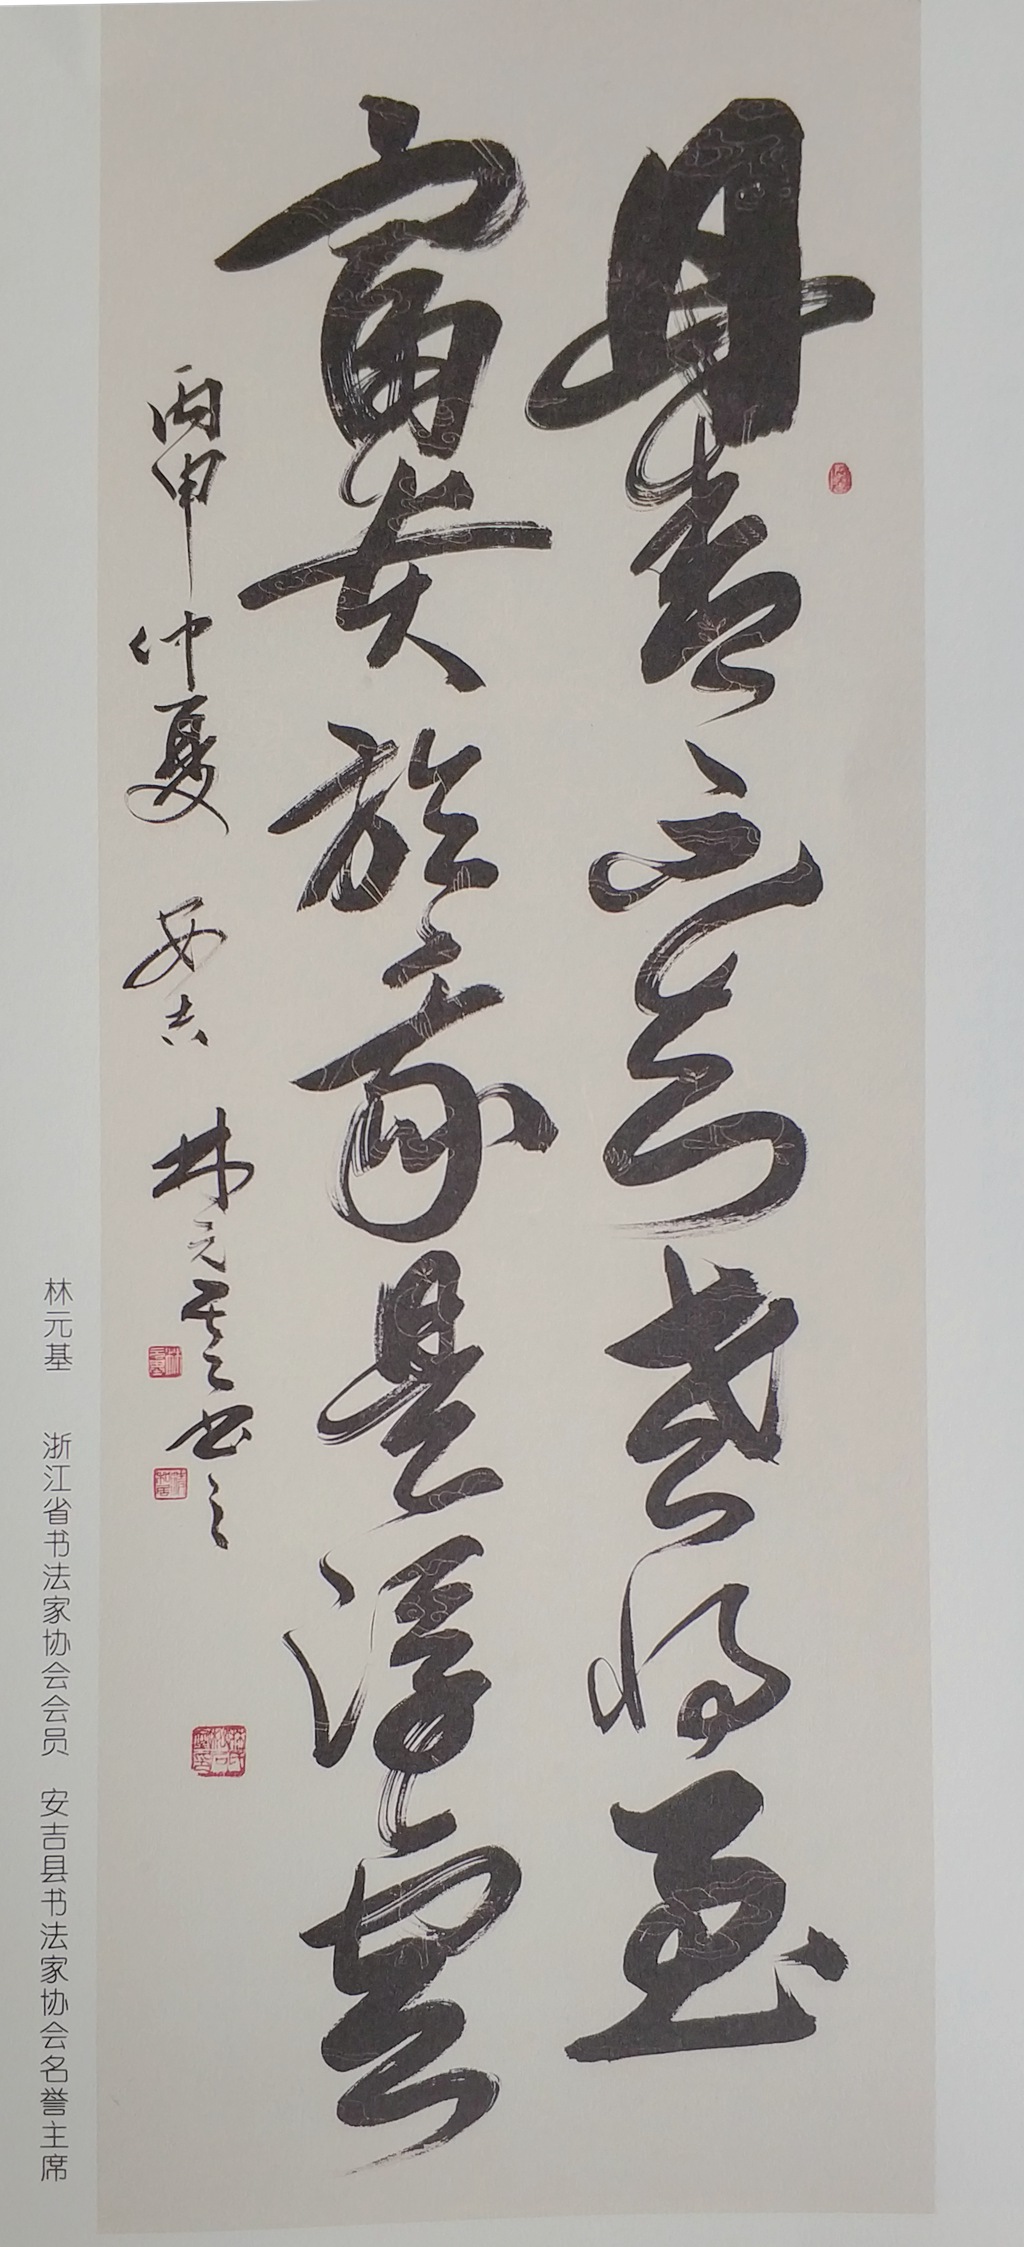 丹青不知老将至
富贵於我是浮云
丙申仲夏 安吉 林元基书之
林元基 浙江省书法家协会会员 安吉县书法家协会名誉主席